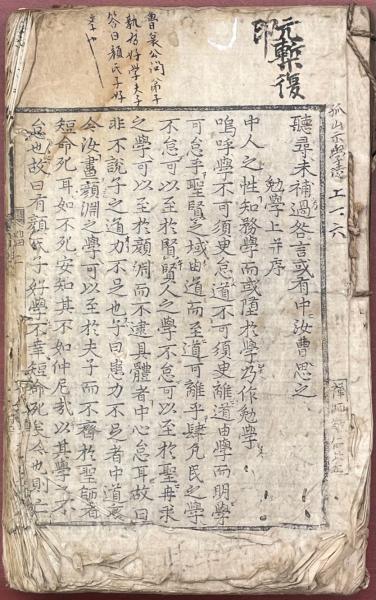 孤山示學徒
聽尋未補過咎言或有中汝曹思之
勉學上并序
中人之性知務學而或墮於學乃作勉學
嗚呼學不可須臾怠道不可須臾離道由學而明學
可怠乎聖賢之域由道而至道可離乎肆凡民之學
不怠可以至於賢賢人之學不怠可以至於聖冉求
之學可以至於顏淵而不逮具體者中心怠耳故曰
非不說子之道力不足也子曰患力不足者中道廢
今汝畫顏淵之學可以至於夫子而不齊於聖師者
短命死耳如不死安知其不如仲尼哉以其學之不
怠也故曰有顏氏子好學不幸短命死矣今也則亡
魯哀公問弟子
孰爲好学夫子
答曰顏氏子好